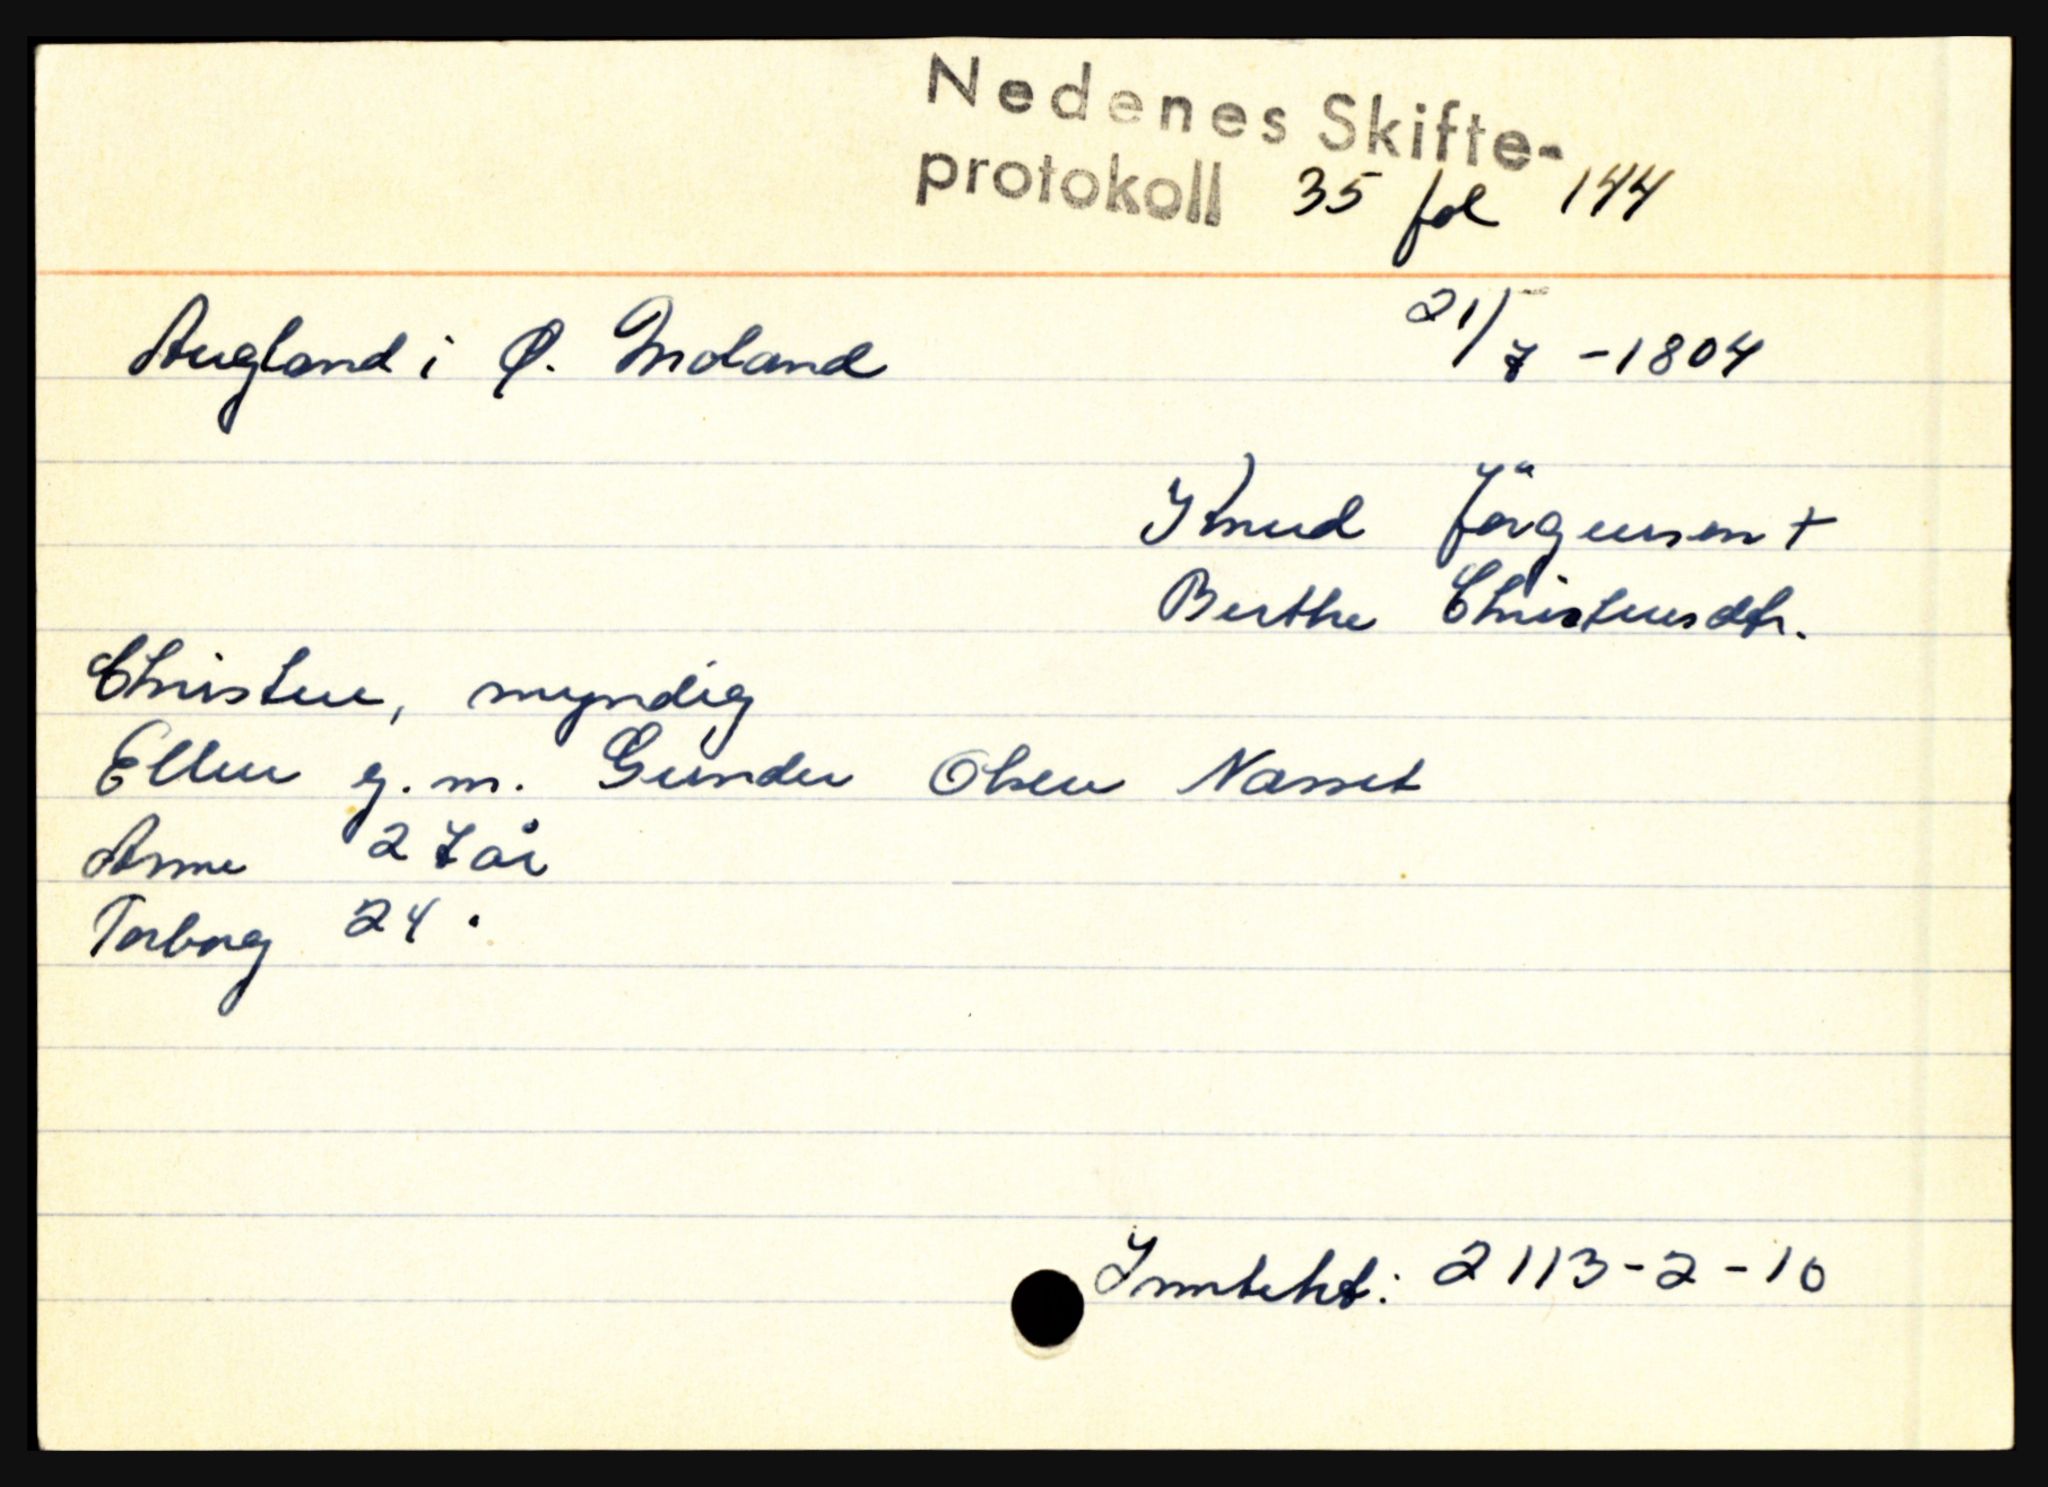 Nedenes Skifte-
protokoll 35 fol 144
Augland i Ø. Moland 21/7 -1804
Knud Jörgensen +
Berthe Christensdtr.
Christen, myndig
Ellen g. m. Gunder Olsen Nasset
Anne 27 år
Torborg 24 "
Inntekt: 2113-2-10